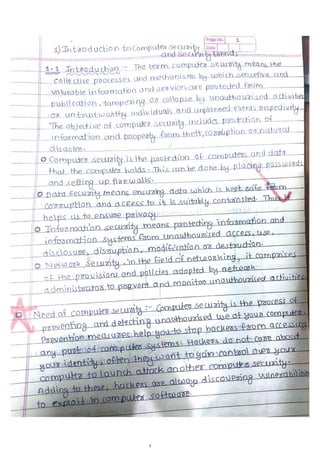 Page No. 1
Date
1) Introduction to Computer Security
and Security trends
1.1 Introduction :- The term computer security means the
collective processes and mechanism by which sensetive and
valuable information and services are protected from
publication, tampering or collapse by unauthourised activities
or untrustworthy individuals and unplanned events respectively.
The objective of computer security includes protection of
information and property from theft, corruption or natural
disaster.
Computer security is the protection of computers and data
that the computer holds. This can be done by placing passwords
and setting up firewalls.
Data security means ensuring data which is kept safe from
corruption and access to it is suitably controlled. Thus it
helps us to ensure privacy.
Information security means protecting information and
information systems from unauthourised access, use,
disclosure, disruption, modification or destruction.
Network security. In the field of networking, it comprises
of the provisions and policies adopted by network
administrators to prevent and monitor unauthourised activities
Need of computer security :- Computer security is the process of
preventing and detecting unauthourised use of your computer.
Prevention measures help you to stop hackers from accessing
any part of computer systems. Hackers do not care about
your identity, often they want to gain control over your
computer to launch attack another computer security.
Adding to these, hackers are always discovering vulnerabilities
to exploit in computer software.
1